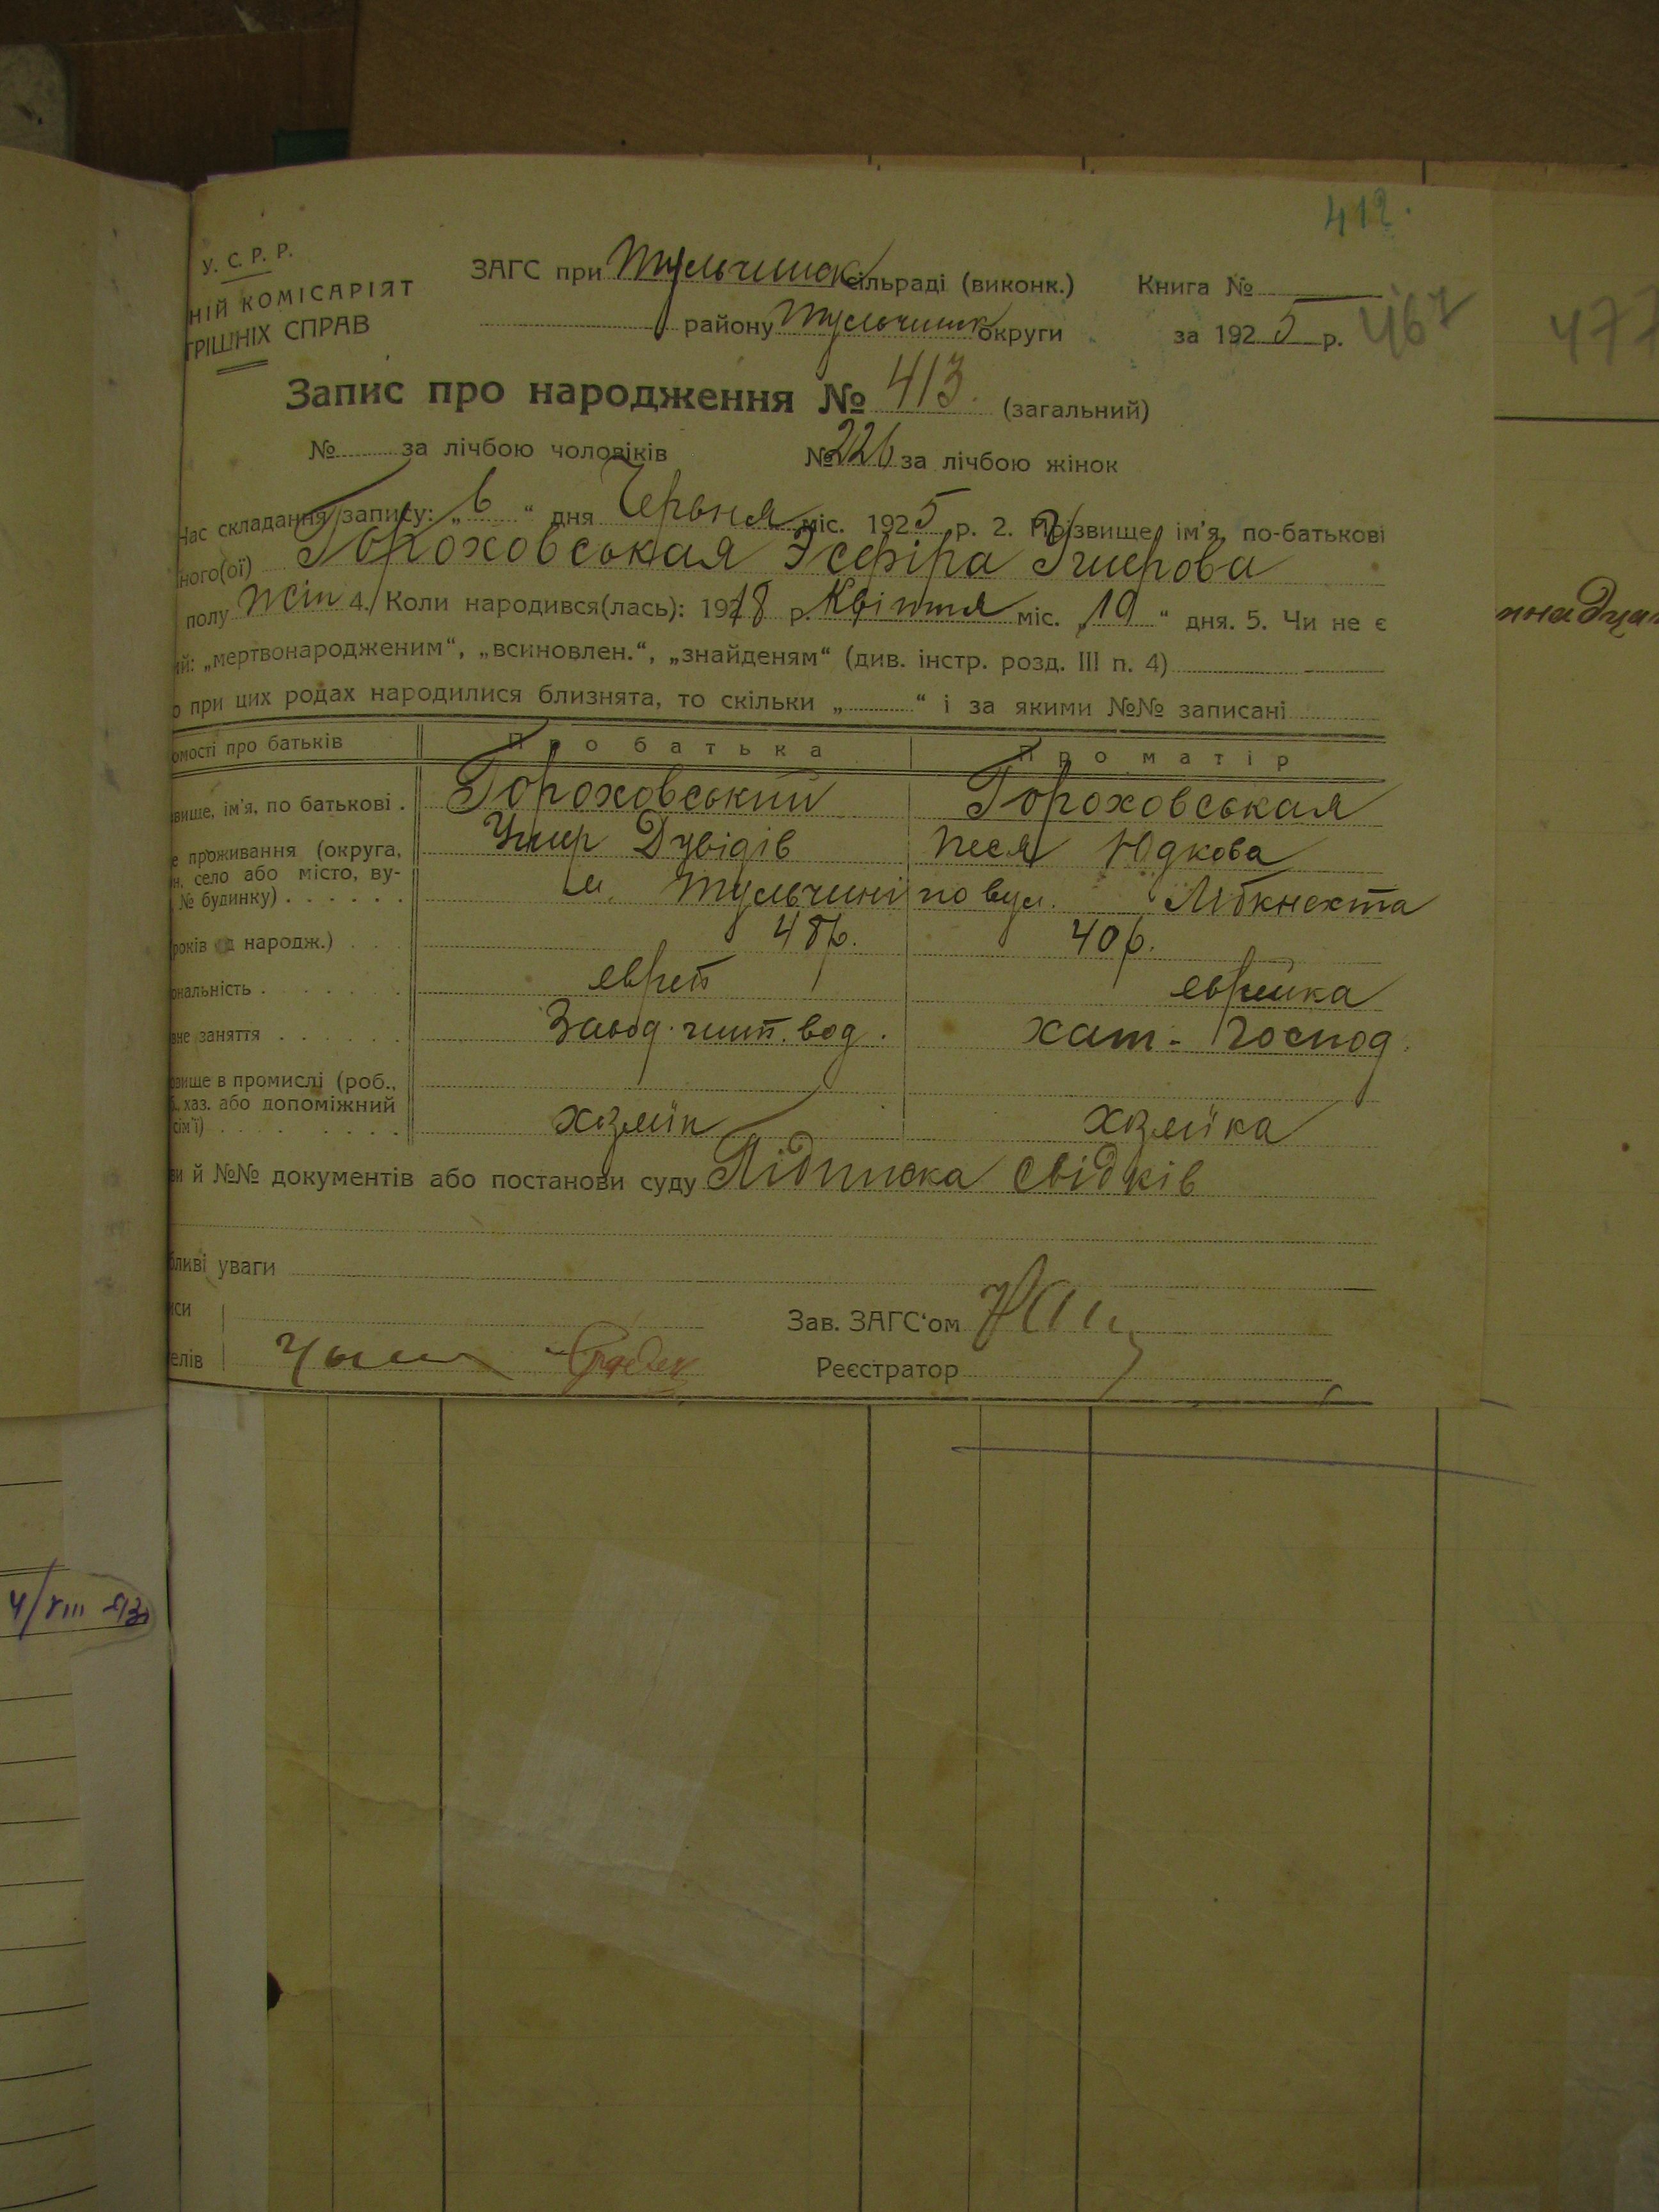 412.
У. С. Р. Р.
НІЙ КОМІСАРІЯТ
ТРІШНІХ СПРАВ
ЗАГС при Тульчинск сільраді (виконк.) Книга №
району Тульчинск округи за 1925 р. 467
477
Запис про народження № 413. (загальний)
№ за лічбою чоловіків № 226 за лічбою жінок
Час складання запису: „6“ дня Червня міс. 1925 р. 2. Прізвище, ім'я, по-батькові
ного(ої) Гороховськая Эсфіра
полу жін 4. Коли народився(лась): 1918 р. Квіття міс. „19“ дня. 5. Чи не є
ий: „мертвонародженим“, „всиновлен.“, „знайденям“ (див. інстр. розд. III п. 4)
о при цих родах народилися близнята, то скільки „ “ і за якими №№ записані
омості про батьків Про батька Про матір
звище, ім'я, по батькові . Гороховський Гороховськая
Дувідів Песя Юдкова
е проживання (округа,
н, село або місто, ву-
№ будинку) . . . . . . м. Тульчині по вул. Лібкнехта
років від народж.) . . . 48 р. 40 р.
ональність . . . . . еврей еврейка
вне заняття . . . . . . Завод. вод. хат. господ.
овище в промислі (роб.,
хаз. або допоміжний
сім'ї) . . . . . . хазяїн хазяїка
ви й №№ документів або постанови суду Підписка свідків
бливі уваги
иси Зав. ЗАГС'ом
елів Реєстратор
4/VIII